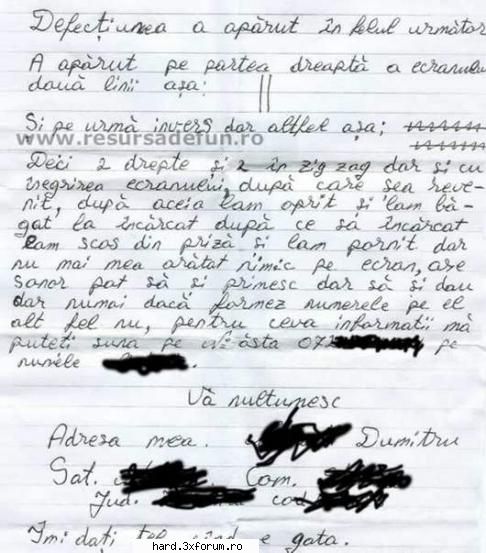 Defecțiunea a apărut în felul următor
A apărut pe partea dreaptă a ecranului
două linii așa:
Si pe urmă invers dar altfel așa;
www.resursadefun.ro
Deci 2 drepte și 2 în zig zag dar si cu
înegrirea ecranului, după care sea reve-
nit, după aceia lam oprit si lam bă-
gat la încărcat după ce să încărcat
lam scos din priză si lam pornit dar
nu mai mea arătat nimic pe ecran, are
sonor pot să si primesc dar să si dau
dar numai dacă formez numerele pe el
alt fel nu, pentru ceva informatii mă
puteti suna pe ăsta 072 pe
numele .
Vă multumesc
Adresa mea. Dumitru
Sat. Com.
Jud. cod
Imi dați tel când e gata.
hard.3xforum.ro